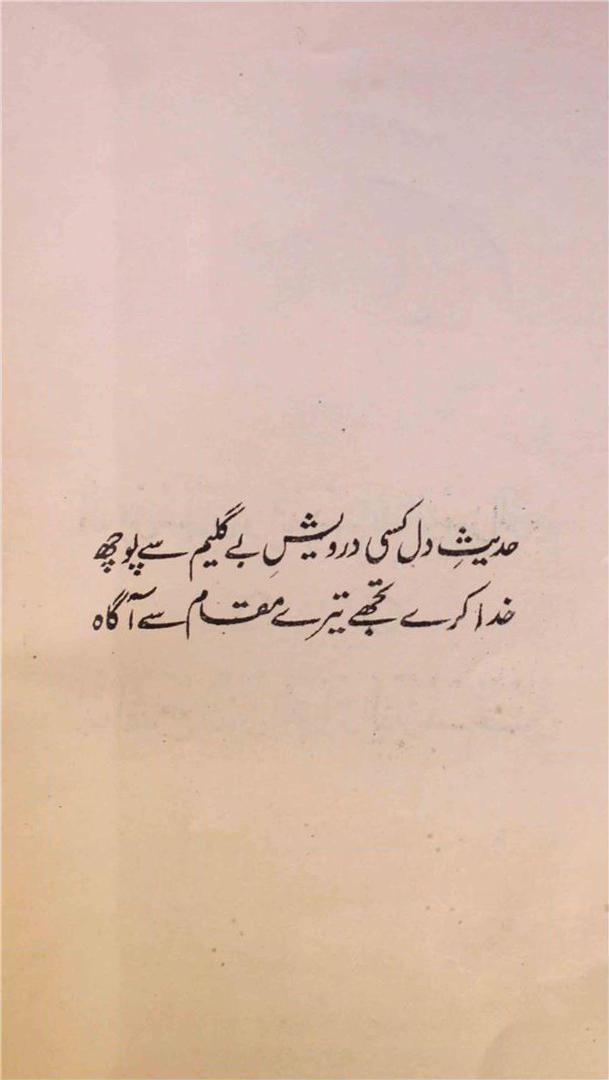 حدیثِ دل کسی درویشِ بے گلیم سے پوچھ
خدا کرے تجھے تیرے مقام سے آگاہ